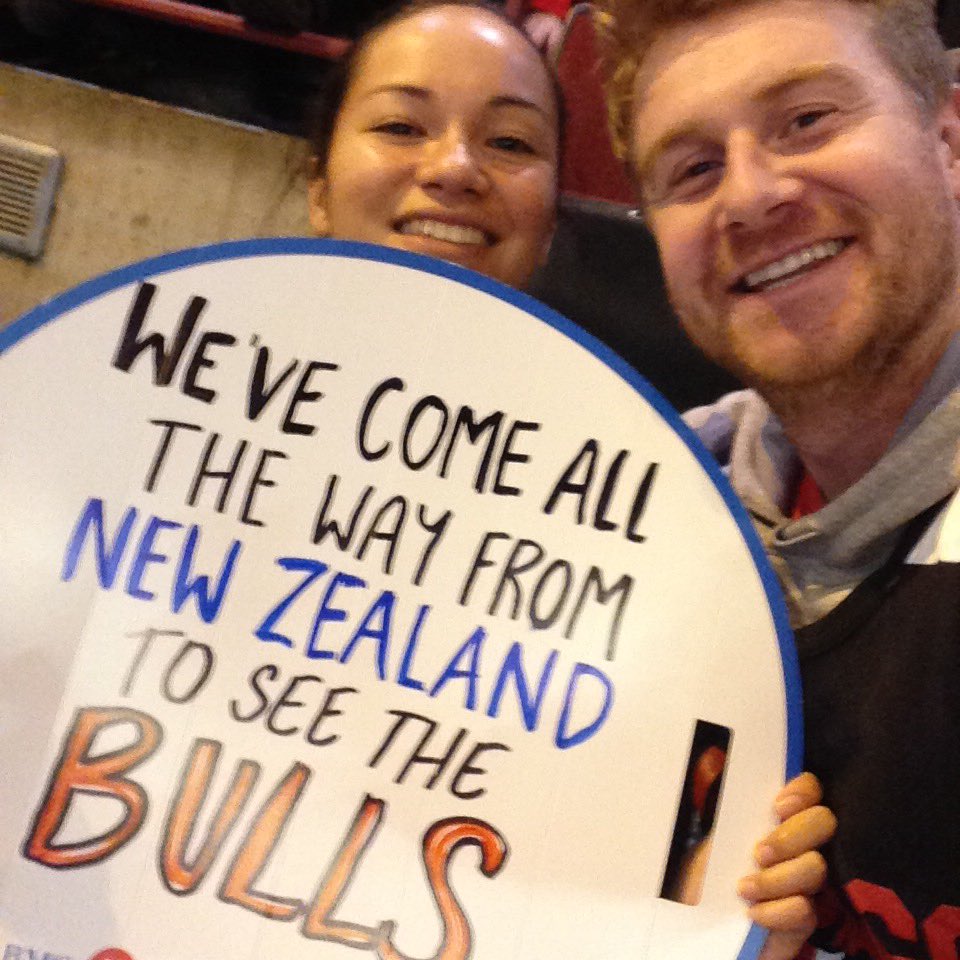 WE'VE COME ALL
THE WAY FROM
NEW ZEALAND
TO SEE THE
BULLS